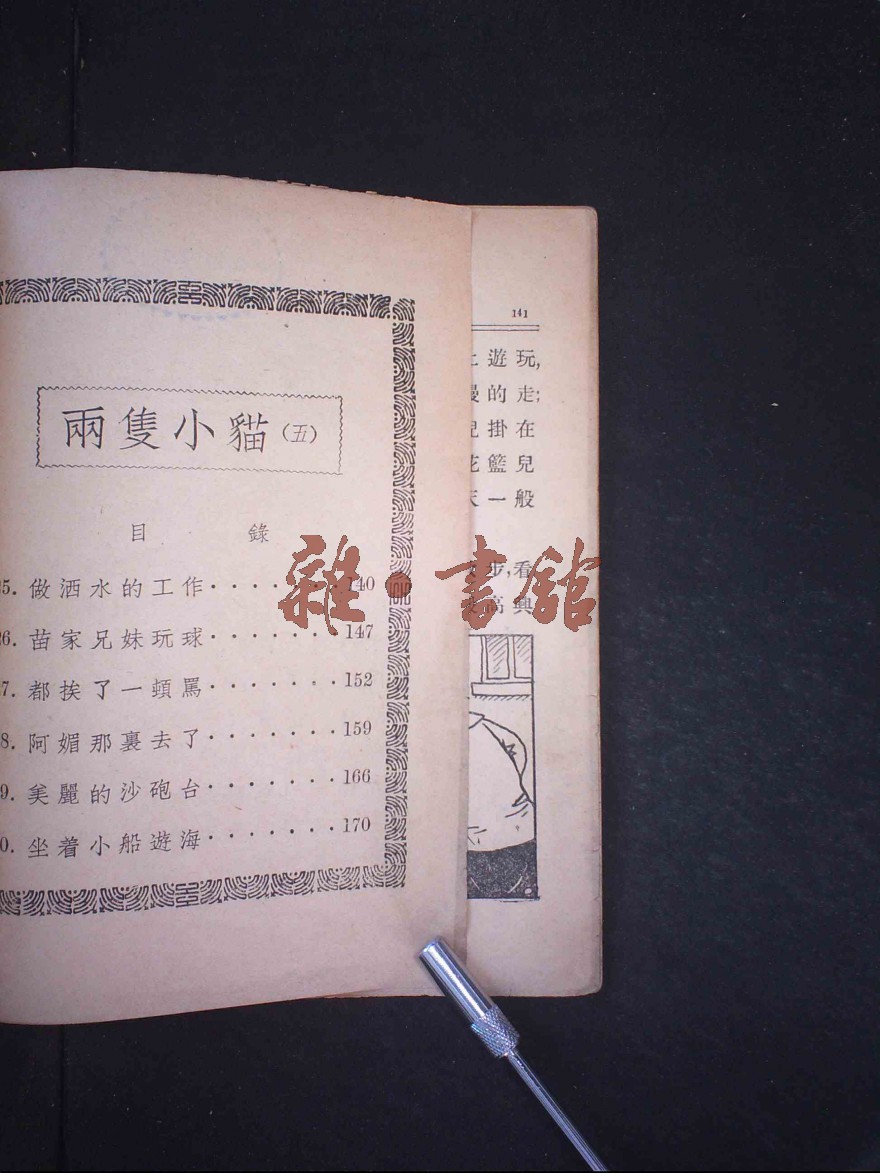 兩隻小貓(五)
目 錄
5. 做洒水的工作········140
26. 苗家兄妹玩球·······147
7. 都挨了一頓罵·······152
8. 阿媚那裏去了·······159
9. 美麗的沙砲台·······166
0. 坐着小船遊海·······170
141
上遊玩,
的走;
兒掛在
花籃兒
天一般
步,看
高興
雜·書館